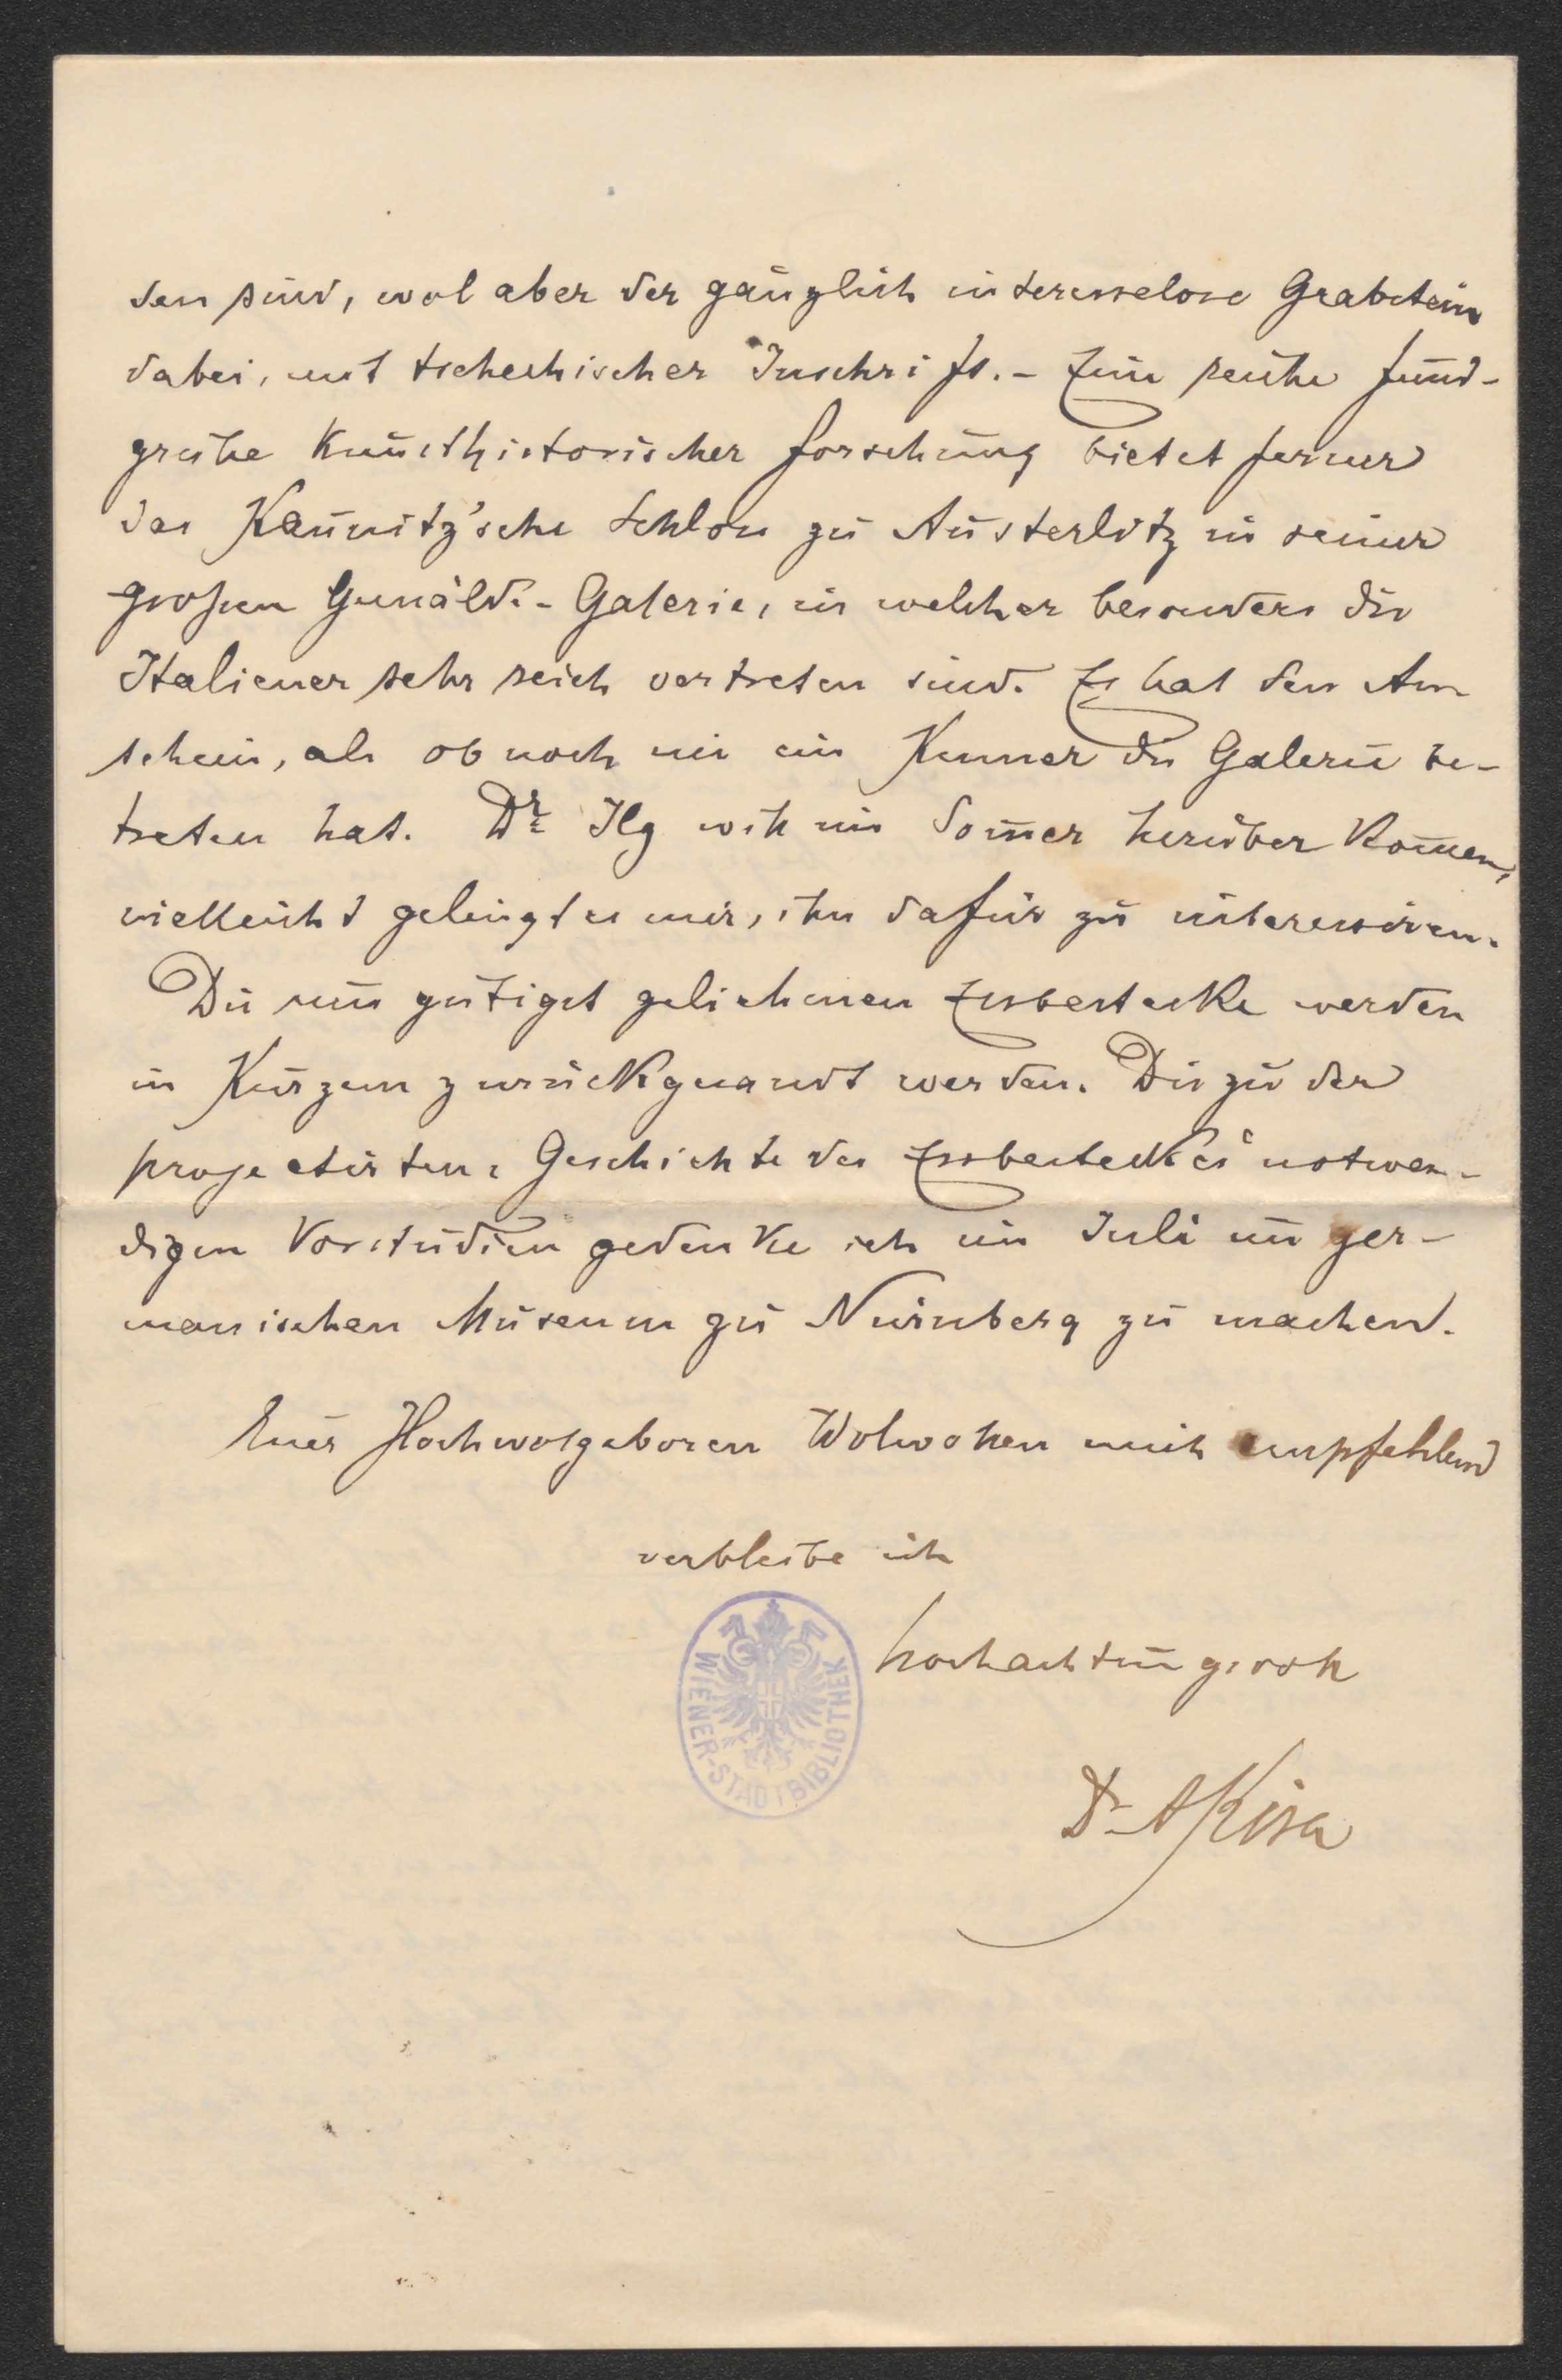 den sind, wol aber der gänzlich interesselose Grabstein
dabei, mit tschechischer Inschrift. - Eine reiche Fund-
grube kunsthistorischer Forschung bietet ferner
das Kaunitz'sche Schloss zu Austerlitz in seiner
großen Gemälde-Galerie, in welcher besonders die
Italiener sehr reich vertreten sind. Es hat den An
schein, als ob noch nie ein Kenner die Galerie be-
treten hat. Dr. Ilg will im Som̄er herüber kom̄en,
vielleicht gelingt es mir, ihn dafür zu interessiren.
Die uns gütigst geliehenen Essbestecke werden
in Kurzem zurückgesandt werden. Die zu der
projectirten „Geschichte des Essbesteckes" notwen-
digen Vorstudien gedenke ich im Juli im ger-
manischen Museum zu Nürnberg zu machen.
Euer Hochwolgeboren Wolwollen mich empfehlend
verbleibe ich
hochachtungsvoll
Dr AKisa
WIENER-STADTBIBLIOTHEK